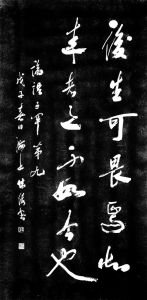 後生可畏焉知
来者之不如今也
論語子罕第九
戊子春日